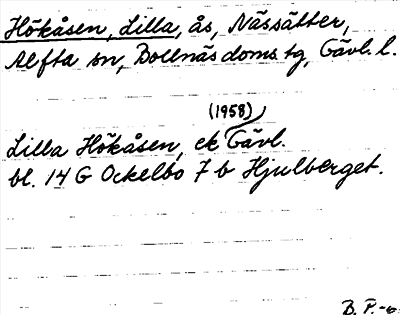 Hökåsen, Lilla, ås, Nässätter,
Alfta sn, Bollnäs doms. tg, Gävl. l.
(1958)
Lilla Hökåsen, ek Gävl.
bl. 14 G Ockelbo 7 b Hjulberget.